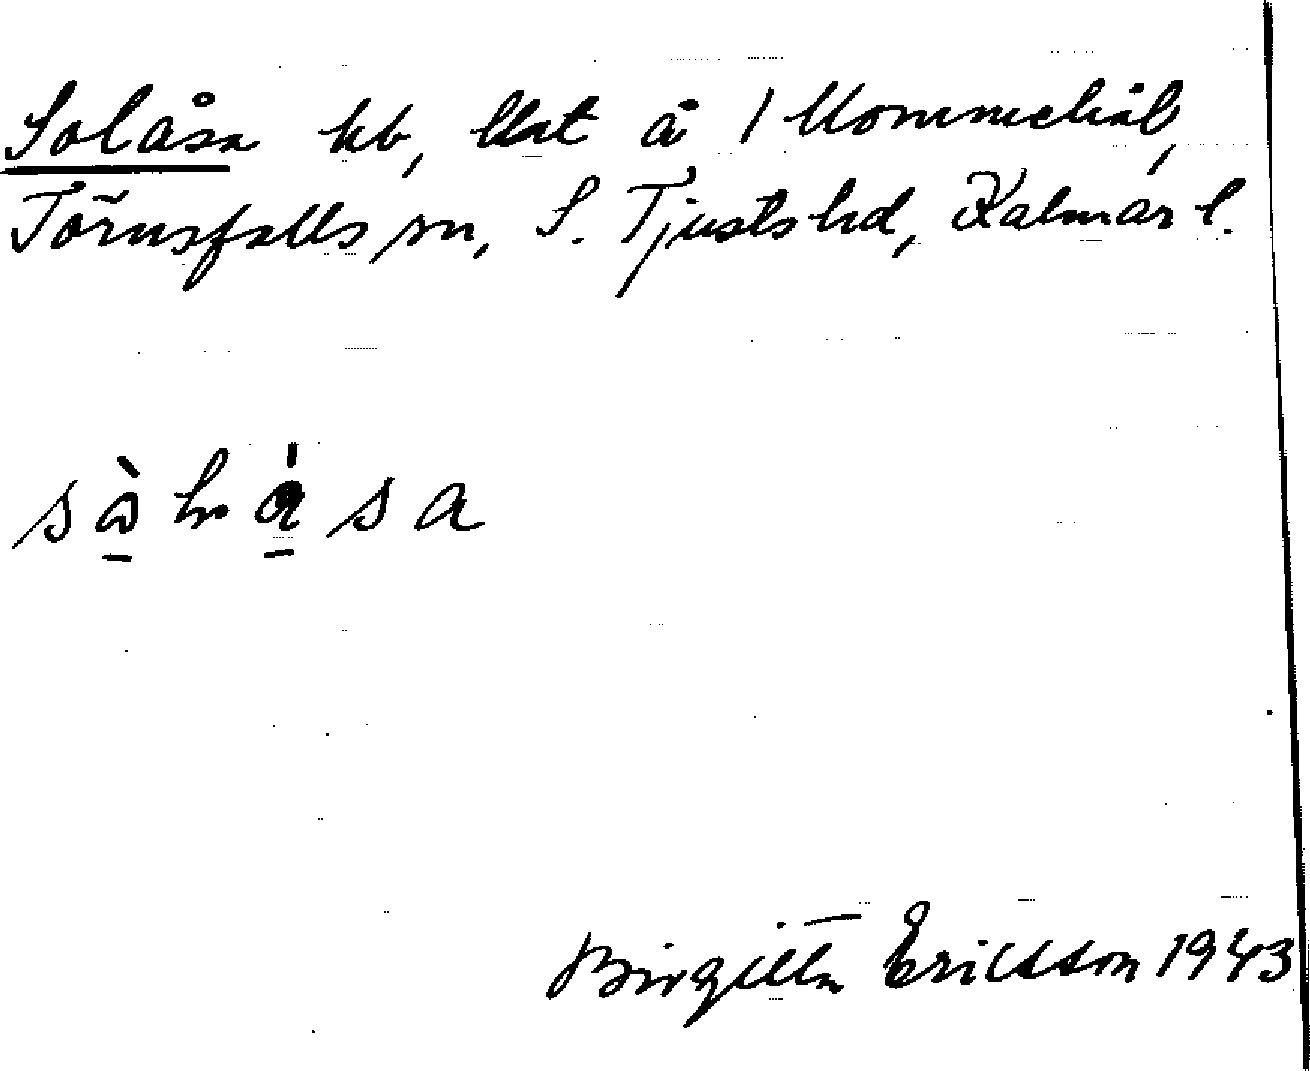 Solåsa hb, lht å 1 Mommehål,
Törnsfalls sn, S. Tjusts hd, Kalmar l.
Birgitta Ericsson 1943